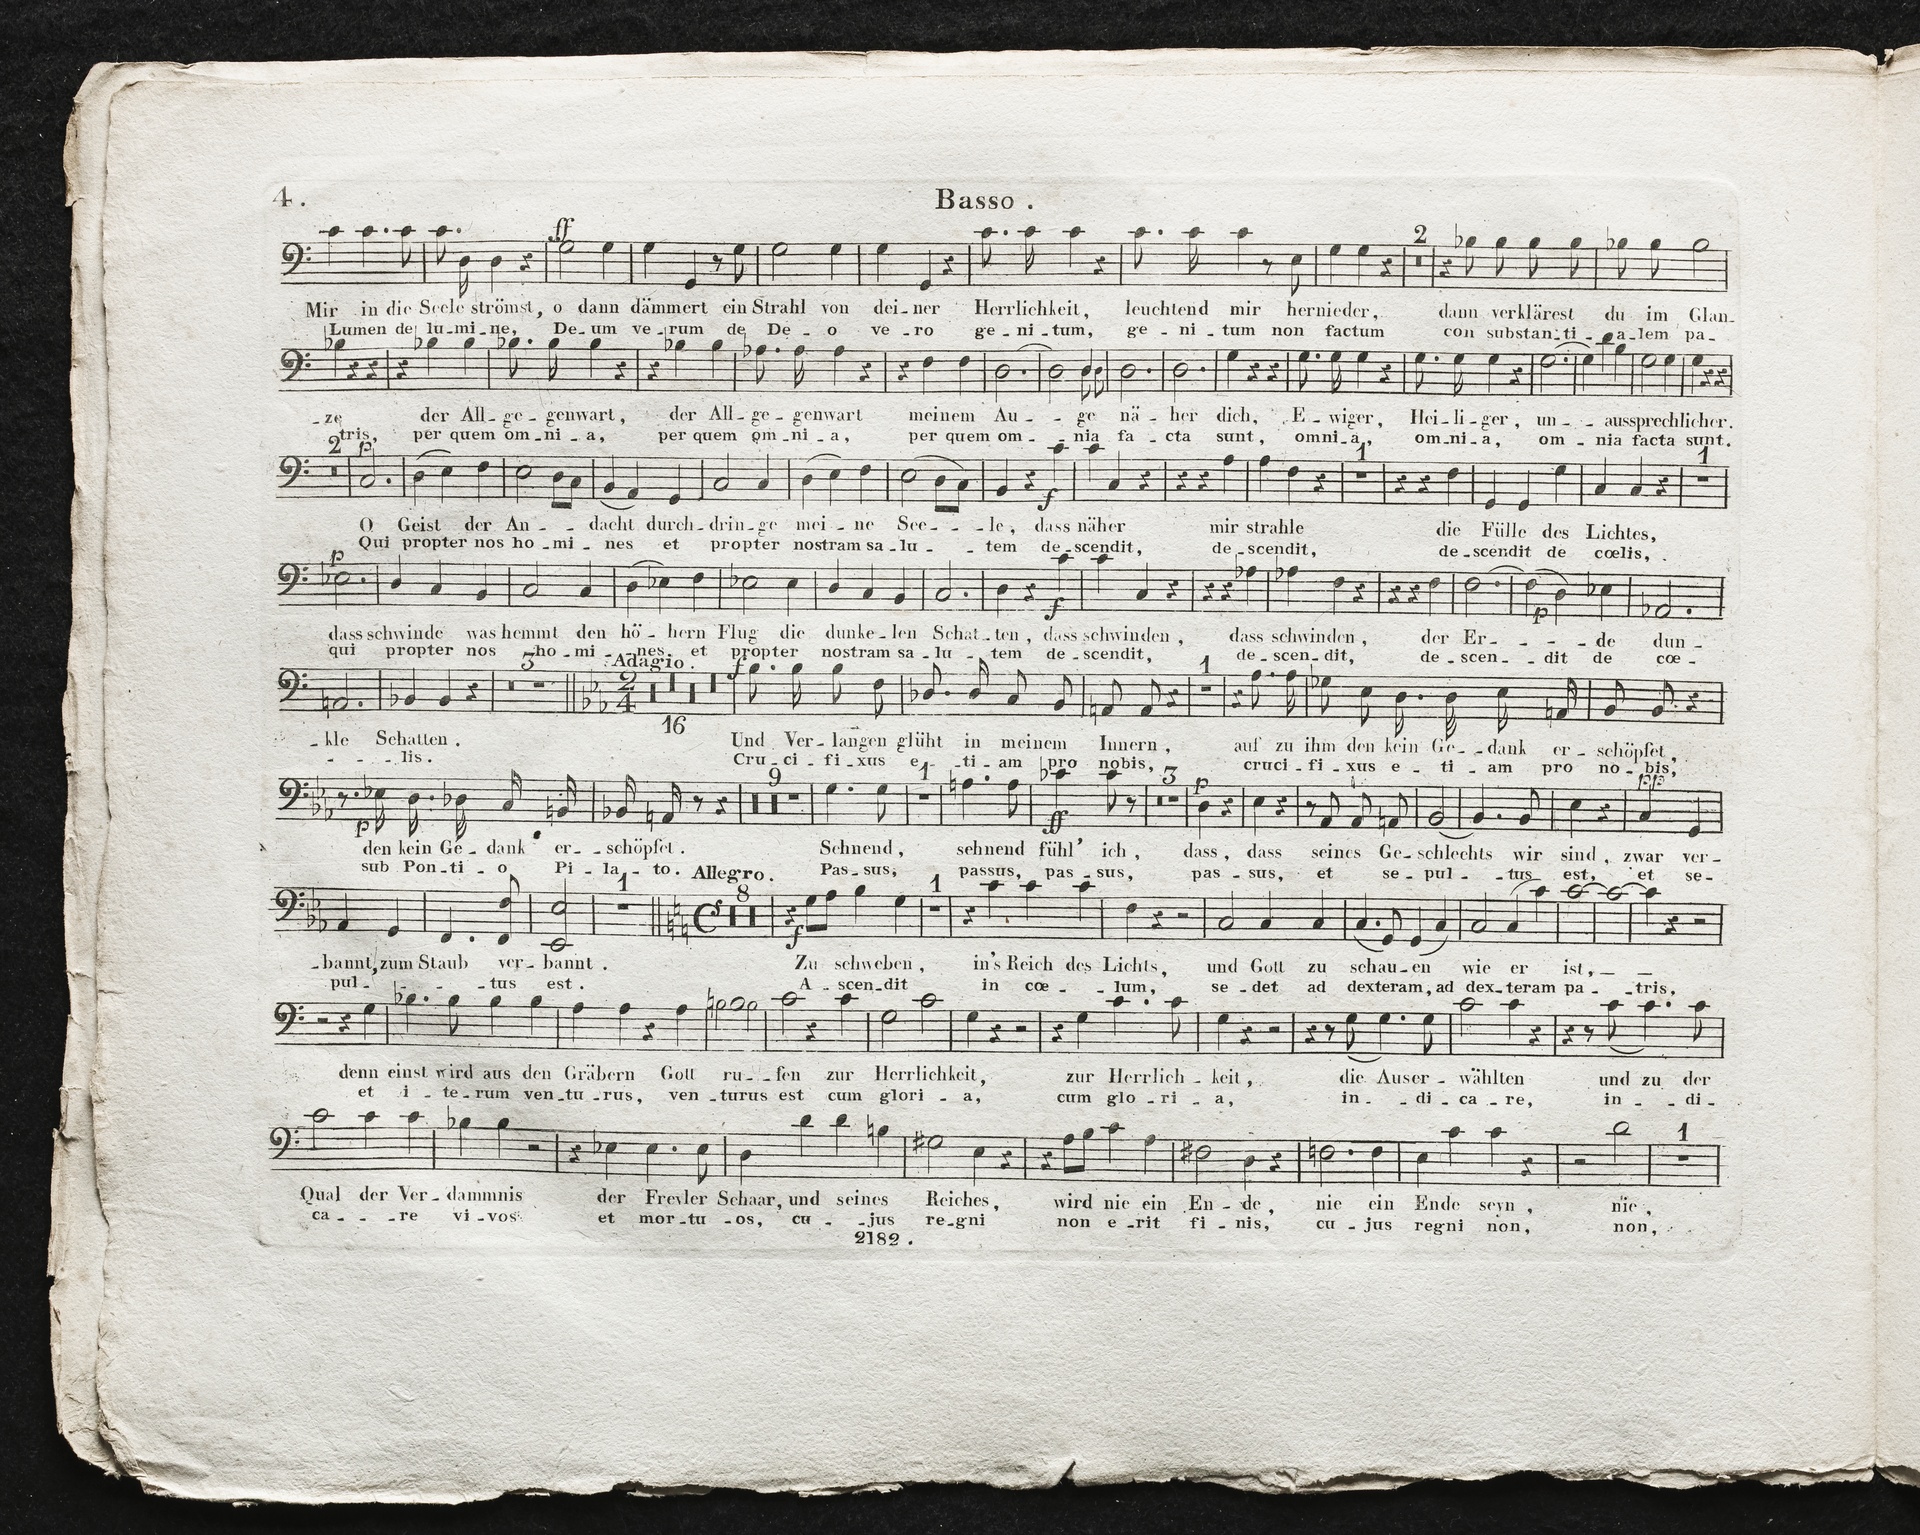 4.
Basso .
ff
2
Mir in die Seele strömst, o dann dämmert ein Strahl von dei-ner Herrlichkeit, leuchtend mir hernieder, dann verklärest du im Glan-
Lumen de lu-mi-ne, De-um ve-rum de De-o ve-ro ge-ni-tum, ge-ni-tum non factum con substan-ti-a-lem pa-
-ze der All-ge-genwart, der All-ge-genwart meinem Au--ge nä-her dich, E-wiger, Hei-li-ger, un--aussprechlicher.
tris, per quem om-ni-a, per quem om-ni-a, per quem om--nia fa-cta sunt, omni-a, om-ni-a, om-nia facta sunt.
2 p f 1 1
O Geist der An--dacht durch-drin-ge mei-ne See---le, dass näher mir strahle die Fülle des Lichtes,
Qui propter nos ho-mi-nes et propter nostram sa-lu--tem de-scendit, de-scendit, de-scendit de cœlis,
p f p
dass schwinde was hemmt den hö-hern Flug die dunke-len Schat-ten, dass schwinden, dass schwinden, der Er----de dun-
qui propter nos ho-mi-nes et propter nostram sa-lu-tem de-scendit, de-scen-dit, de-scen--dit de cœ-
3 Adagio. 2/4 16 f 1
-kle Schatten. Und Ver-langen glüht in meinem Innern, auf zu ihm den kein Ge--dank er-schöpfet,
---lis. Cru-ci-fi-xus e-ti-am pro nobis, cruci-fi-xus e-ti-am pro no-bis,
p 9 1 ff 3 p pp
den kein Ge-dank er--schöpfet. Sehnend, sehnend fühl' ich, dass, dass seines Ge-schlechts wir sind, zwar ver-
sub Pon-ti-o Pi-la-to. Pas-sus, passus, pas-sus, pas-sus, et se-pul-tus est, et se-
1 Allegro. 8 f 1
-bannt, zum Staub ver-bannt. Zu schweben, in's Reich des Lichts, und Gott zu schau-en wie er ist,--
pul----tus est. A-scen-dit in cœ--lum, se-det ad dexteram, ad dex-teram pa--tris,
denn einst wird aus den Gräbern Gott ru--fen zur Herrlichkeit, zur Herrlich-keit, die Auser-wählten und zu der
et i-te-rum ven-tu-rus, ven-turus est cum glori-a, cum glo-ri-a, in--di-ca-re, in--di-
1
Qual der Ver-dammnis der Frevler Schaar, und seines Reiches, wird nie ein En-de, nie ein Ende seyn, nie,
ca---re vi-vos et mor-tu-os, cu--jus re-gni non e-rit fi-nis, cu-jus regni non, non,
2182 .